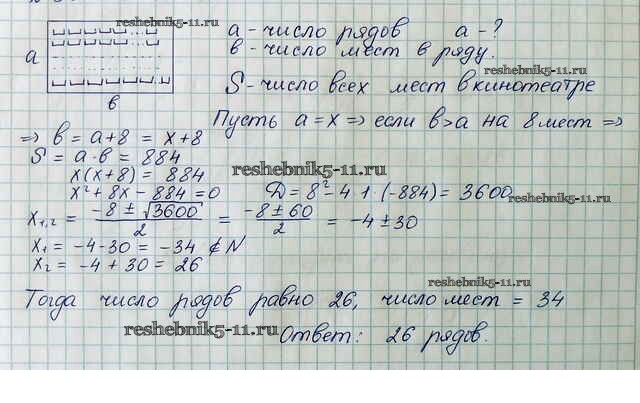 reshebnik5-11.ru
a - число рядов a - ?
a
в - число мест в ряду.
reshebnik5-11.ru
в
S - число всех мест в кинотеатре
Пусть a = x => если в > a на 8 мест =>
=> в = a + 8 = x + 8
S = a · в = 884
x(x + 8) = 884
reshebnik5-11.ru
x² + 8x - 884 = 0 D = 8² - 4 · 1 · (-884) = 3600
reshebnik5-11.ru
x₁,₂ = (-8 ± √3600) / 2 = (-8 ± 60) / 2 = -4 ± 30
x₁ = -4 - 30 = -34 ∉ N
x₂ = -4 + 30 = 26
reshebnik5-11.ru
Тогда число рядов равно 26, число мест = 34
reshebnik5-11.ru
Ответ: 26 рядов.